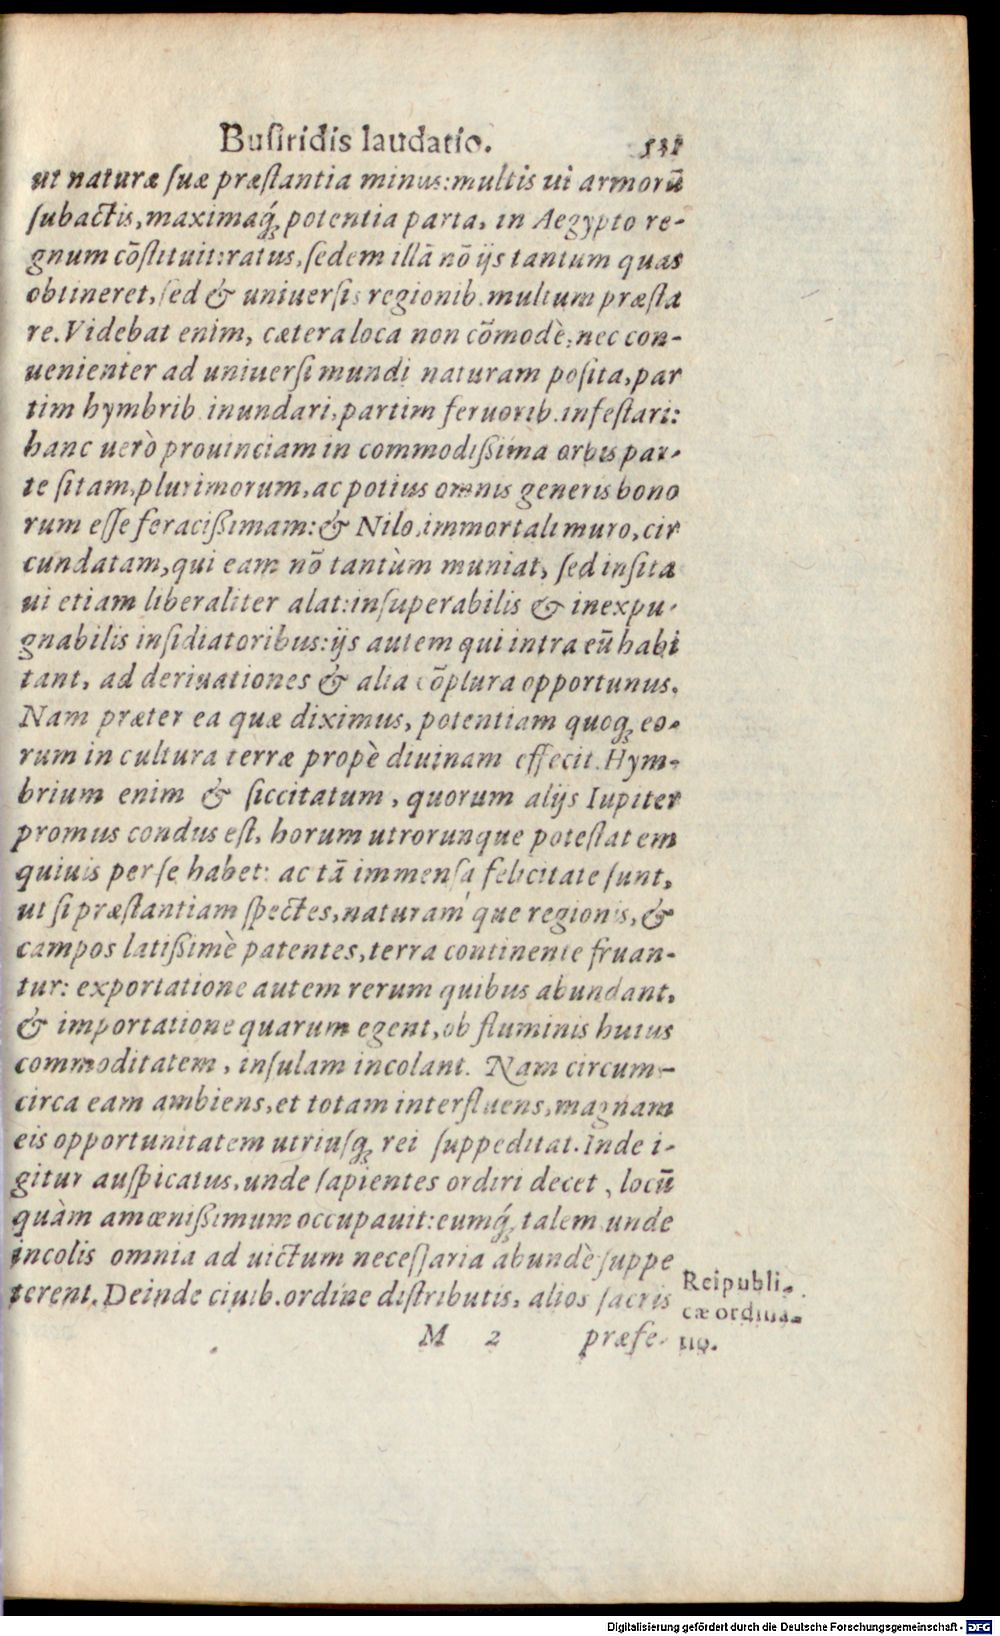 Busiridis laudatio. 531
ut naturæ suæ præstantia minus: multis ui armorū
subactis, maximaq́; potentia parta, in Aegypto re-
gnum cōstituit: ratus, sedem illā nō ijs tantum quas
obtineret, sed & uniuersis regionib. multum præsta
re. Videbat enim, cætera loca non cōmodè, nec con-
uenienter ad uniuersi mundi naturam posita, par
tim hymbrib. inundari, partim feruorib. infestari:
hanc uerò prouinciam in commodißima orbis par-
te sitam, plurimorum, ac potius omnis generis bono
rum esse feracißimam: & Nilo, immortali muro, cir
cundatam, qui eam nō tantùm muniat, sed insita
ui etiam liberaliter alat: insuperabilis & inexpu-
gnabilis insidiatoribus: ijs autem qui intra eū habi
tant, ad deriuationes & alia cōplura opportunus.
Nam præter ea quæ diximus, potentiam quoq; eo-
rum in cultura terræ propè diuinam effecit. Hym-
brium enim & siccitatum, quorum alijs Iupiter
promus condus est, horum utrorunque potestatem
quiuis per se habet: ac tā immensa felicitate sunt,
ut si præstantiam spectes, naturaḿque regionis, &
campos latißimè patentes, terra continente fruan-
tur: exportatione autem rerum quibus abundant,
& importatione quarum egent, ob fluminis huius
commoditatem, insulam incolant. Nam circum-
circa eam ambiens, et totam interfluens, magnam
eis opportunitatem utriusq; rei suppeditat. Inde i-
gitur auspicatus, unde sapientes ordiri decet, locū
quàm amœnißimum occupauit: eumq́; talem unde
incolis omnia ad uictum necessaria abundè suppe
terent. Deinde ciuib. ordine distributis, alios sacris
Reipubli-
cæ ordina-
tio.
M 2 præfe-
Digitalisierung gefördert durch die Deutsche Forschungsgemeinschaft - DFG